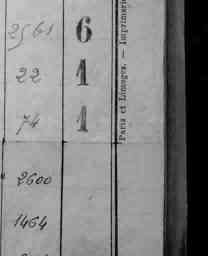 2561 6
22 1
74 1
2600
1464
Paris et Limoges. — Imprimerie